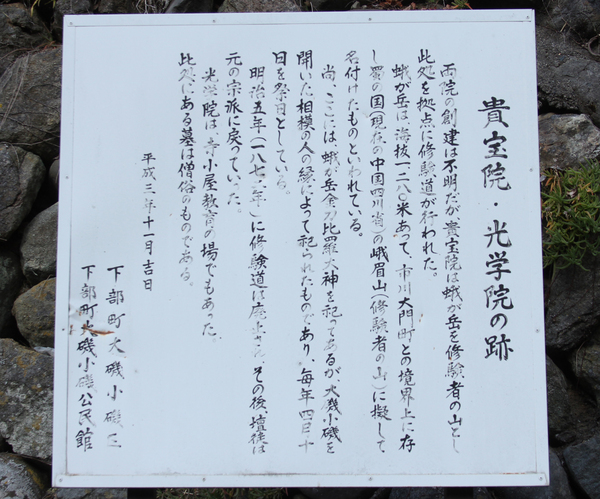 貴宝院・光学院の跡
両院の創建は不明だが、貴宝院は蛾が岳を修験者の山とし
此処を拠点に修験道が行われた。
蛾が岳は、海抜一二八〇米あって、市川大門町との境界上に存
し蜀の国(現在の中国四川省)の峨眉山(修験者の山)に擬して
名付けたものといわれている。
尚、ここには、蛾が岳金刀比羅大神を祀ってあるが、大磯小磯を
開いた相模の人の縁によって祀られたものであり、毎年四月十
日を祭日としている。
明治五年(一八七二年)に修験道は廃止され、その後、壇徒は
元の宗派に戻っていった。
光学院は、寺小屋教育の場でもあった。
此処にある墓は僧俗のものである。
平成三年十一月吉日
下部町大磯小磯区
下部町大磯小磯公民館